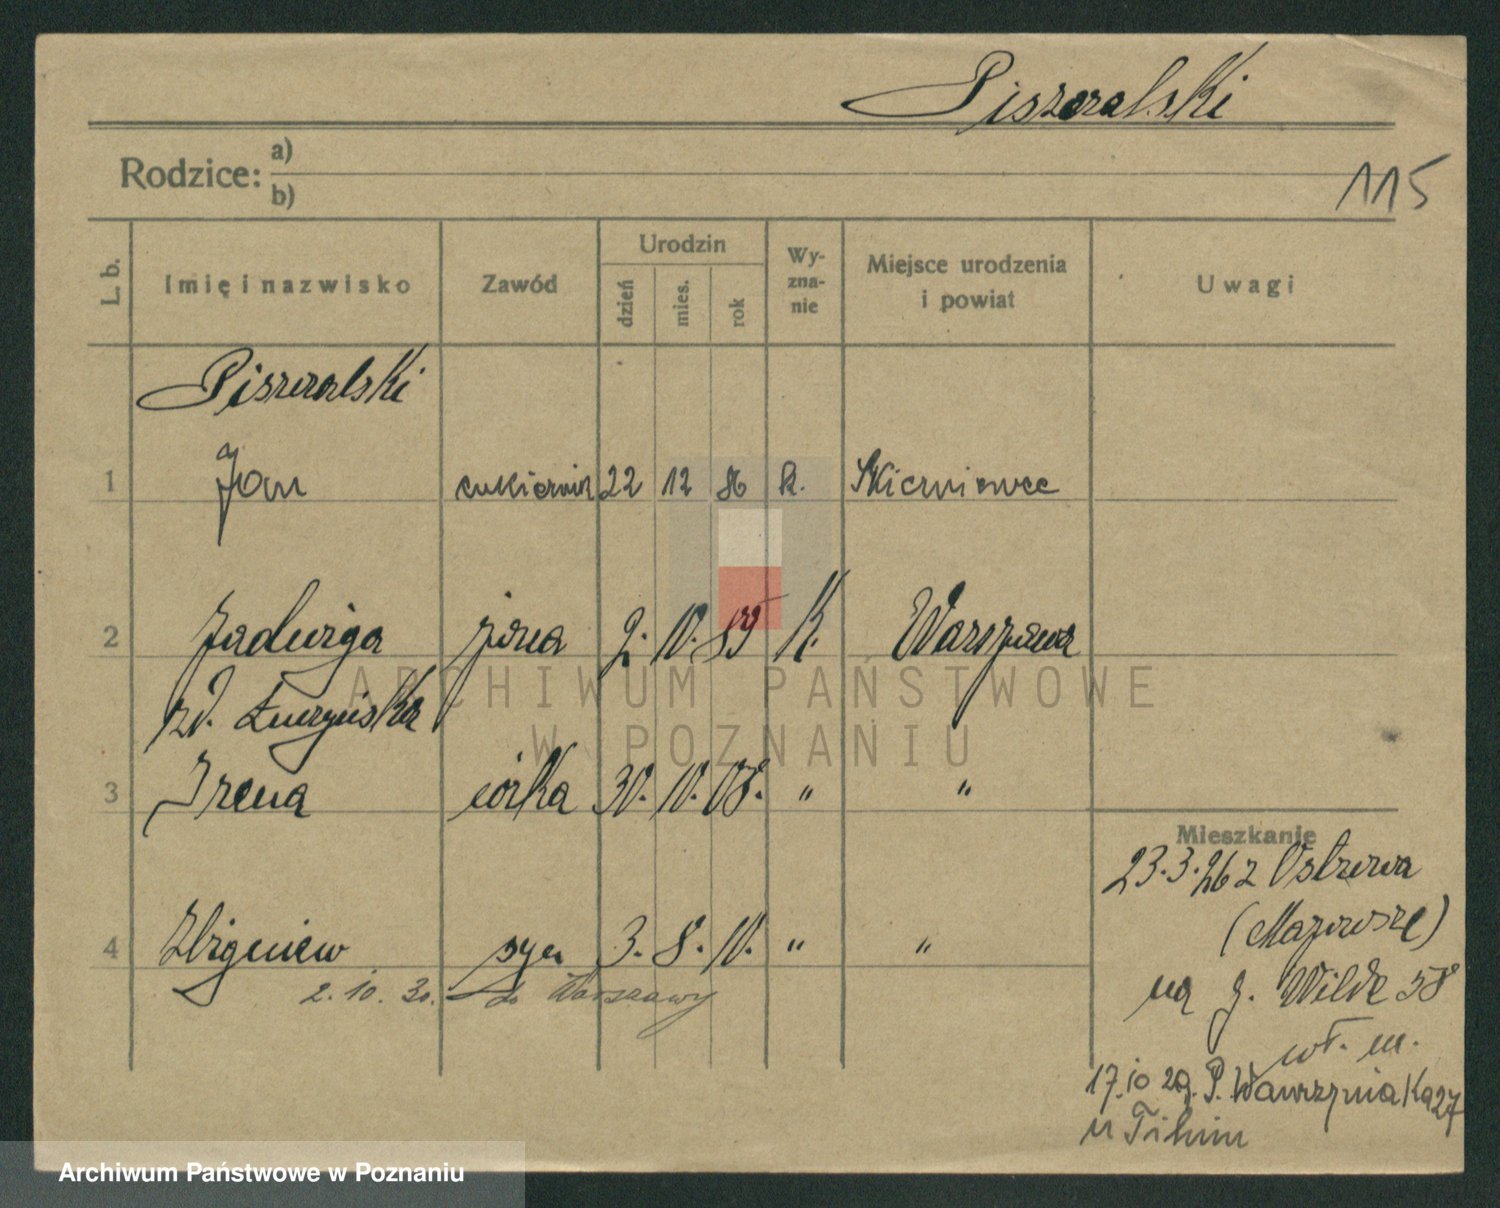 Piszczalski
115
Rodzice: a)
b)
L. b. Imię i nazwisko Zawód Urodzin dzień mies. rok Wyzna-nie Miejsce urodzenia i powiat Uwagi
Piszczalski
1 Jan cukiernik 22 12 86 k. Skierniewice
2 Jadwiga żona 9. 10. 89 K. Warszawa
zd. Łuczyńska
3 Irena córka 30. 10. 08. " "
Mieszkanie
23.3.26 z Ostrowa
(Mazowsze)
4 Zbigniew syn 3. 8. 10. " "
2. 10. 30. do Warszawy
na g. Wilde 58
wł. m.
17.10 29. P. Wawrzyniaka 27
u
ARCHIWUM PAŃSTWOWE
W POZNANIU
Archiwum Państwowe w Poznaniu